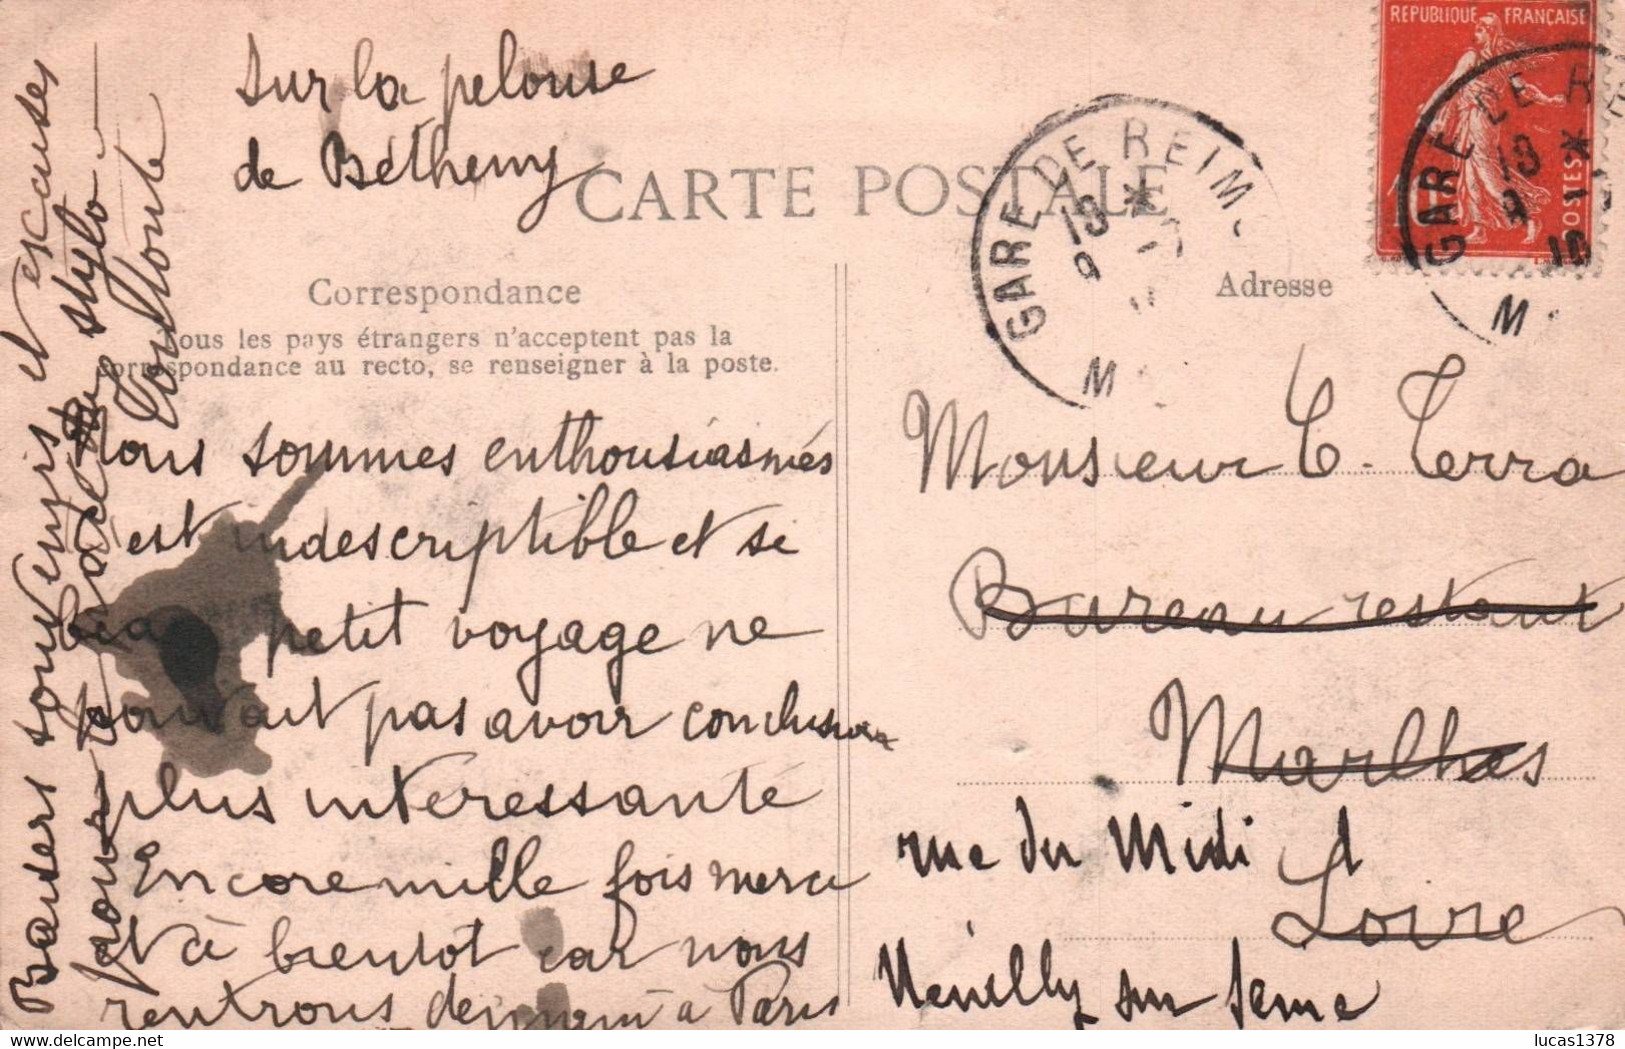 Sur la pelouse
de Bétheny
CARTE POSTALE
Correspondance
Tous les pays étrangers n'acceptent pas la
correspondance au recto, se renseigner à la poste.
Nous sommes enthousiasmés
c'est indescriptible et si
beau petit voyage ne
pouvait pas avoir conclusion
plus intéressante
Encore mille fois merci
et à bientôt car nous
rentrons demain à Paris
Baisers souvenirs et excuses
pour stylo
REPUBLIQUE FRANÇAISE
POSTES
10
GARE DE REIMS
13 *
9
M
GARE DE R
13 *
9
10
M
Adresse
Monsieur C. Terra
Bureau restant
Marlhes
rue du Midi
Loire
Neuilly sur Seine
lucas1378